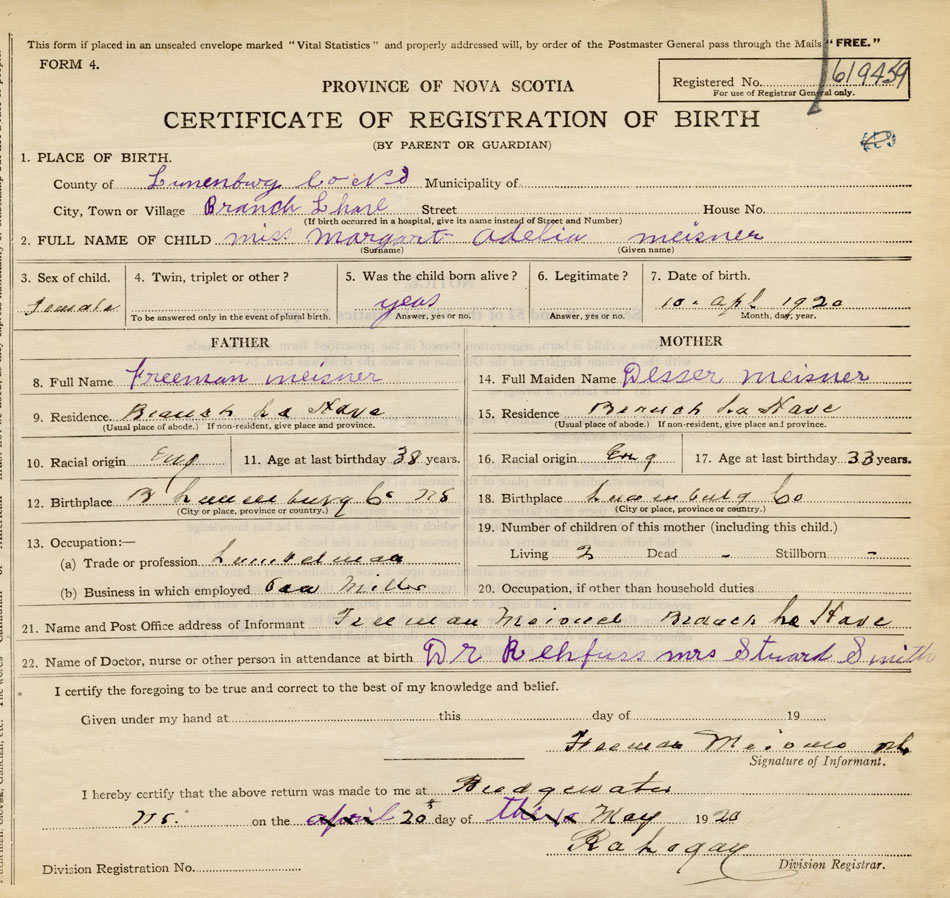 This form if placed in an unsealed envelope marked "Vital Statistics" and properly addressed will, by order of the Postmaster General pass through the Mails "FREE."
FORM 4.
Registered No. 619459
For use of Registrar General only.
PROVINCE OF NOVA SCOTIA
CERTIFICATE OF REGISTRATION OF BIRTH
(BY PARENT OR GUARDIAN)
1. PLACE OF BIRTH.
County of Lunenburg Co Municipality of
City, Town or Village Branch Street House No.
(If birth occurred in a hospital, give its name instead of Street and Number)
2. FULL NAME OF CHILD miss Margart adelia meisner
(Surname) (Given name)
3. Sex of child. 4. Twin, triplet or other? 5. Was the child born alive? 6. Legitimate? 7. Date of birth.
female yeas 10. apl 1920
To be answered only in the event of plural birth. Answer, yes or no. Answer, yes or no. Month, day, year.
FATHER MOTHER
8. Full Name Freeman meisner 14. Full Maiden Name Desser meisner
9. Residence. Branch La Have 15. Residence Branch La Have
(Usual place of abode.) If non-resident, give place and province. (Usual place of abode.) If non-resident, give place and province.
10. Racial origin Eng 11. Age at last birthday 38 years. 16. Racial origin Eng 17. Age at last birthday 33 years.
12. Birthplace B Lunenburg Co NS 18. Birthplace Lunenburg Co
(City or place, province or country.) (City or place, province or country.)
13. Occupation:— 19. Number of children of this mother (including this child.)
(a) Trade or profession Lumberman Living 2 Dead - Stillborn -
(b) Business in which employed Saw Miller 20. Occupation, if other than household duties
21. Name and Post Office address of Informant Freeman Meisner Branch La Have
22. Name of Doctor, nurse or other person in attendance at birth Dr Rehfuss mrs Stuard Smith
I certify the foregoing to be true and correct to the best of my knowledge and belief.
Given under my hand at this day of 19
Freeman Meisner
Signature of Informant.
I hereby certify that the above return was made to me at Bridgewater
NS. on the april 20 day of May 1920
Division Registration No. Division Registrar.